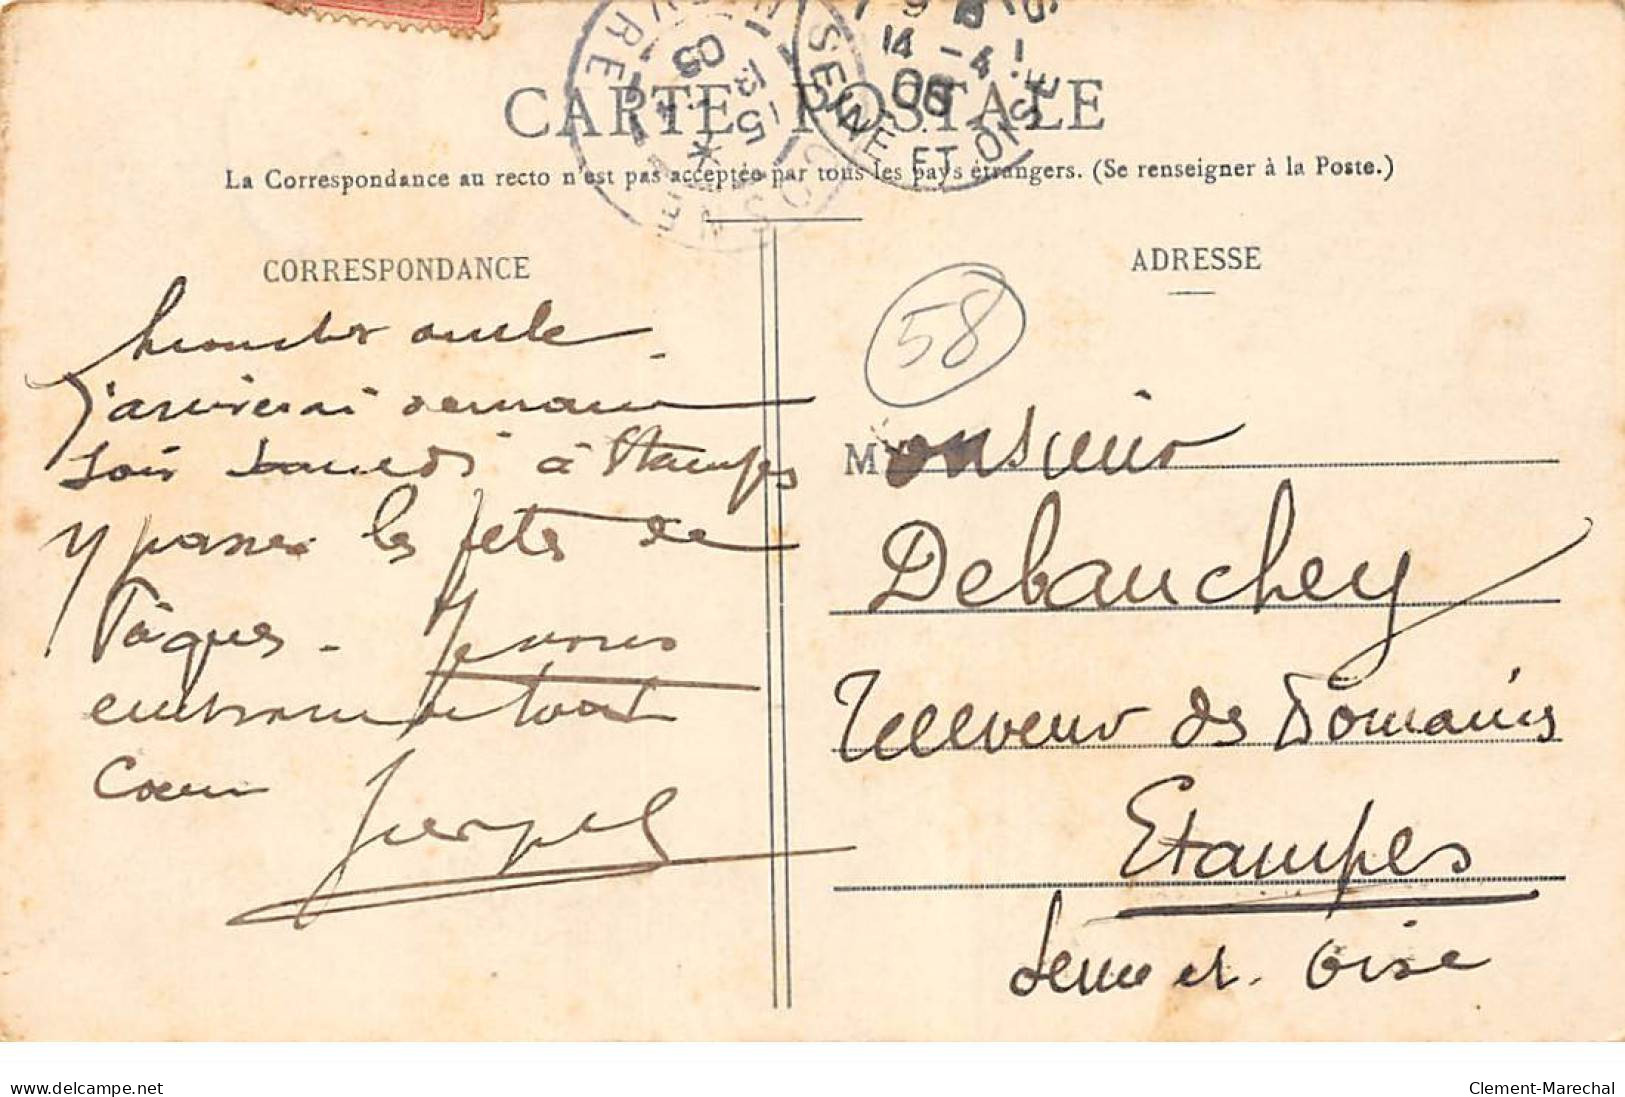 CARTE POSTALE
La Correspondance au recto n'est pas acceptée par tous les pays étrangers. (Se renseigner à la Poste.)
SEINE ET OISE
14 -4
13
COSNE
CORRESPONDANCE
oncle
j'arriverai demain
soir samedi à Etampes
y passer les fetes de
Pâques - Je vous
embrasse de tout
Coeur
ADRESSE
58
Monsieur
Debauchey
Receveur des Domaines
Etampes
Seine et Oise
www.delcampe.net
Clement-Marechal